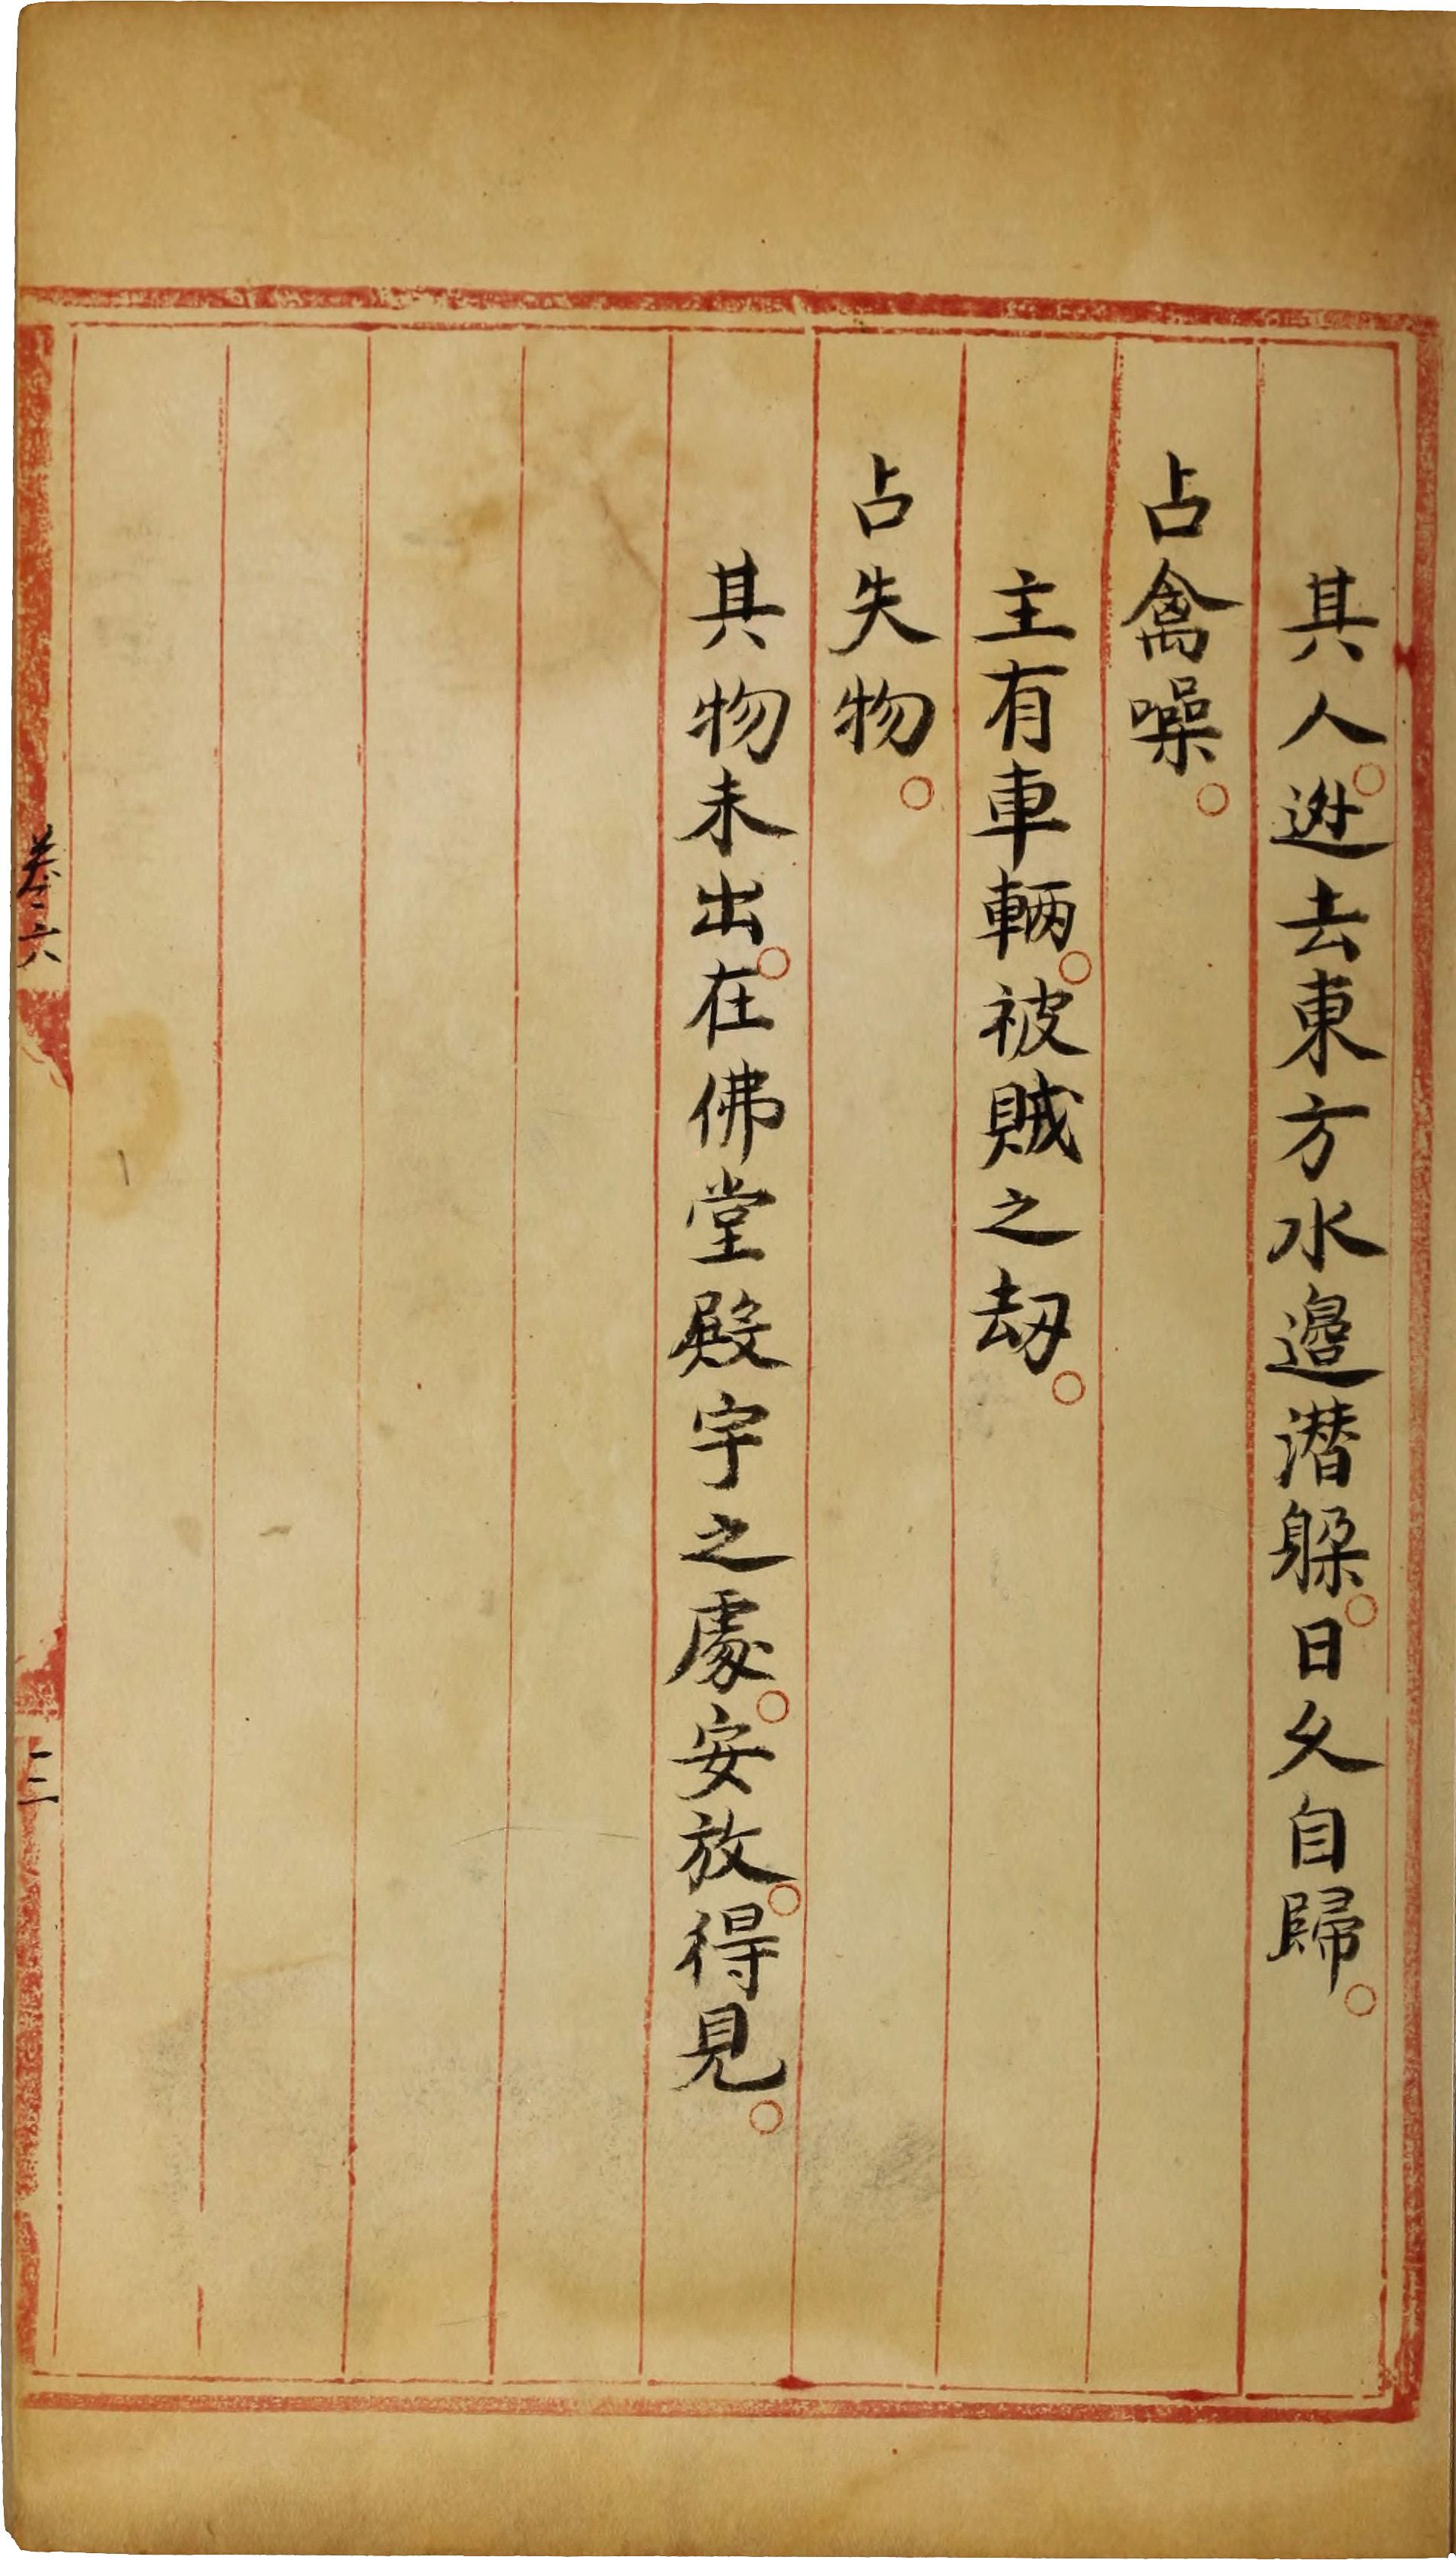 其人。迯去東方水邉潜躱。日久自歸。
占禽噪。
主有車輛。被賊之刼。
占失物。
其物未出。在佛堂殿宇之處。安放。得見。
卷六
三